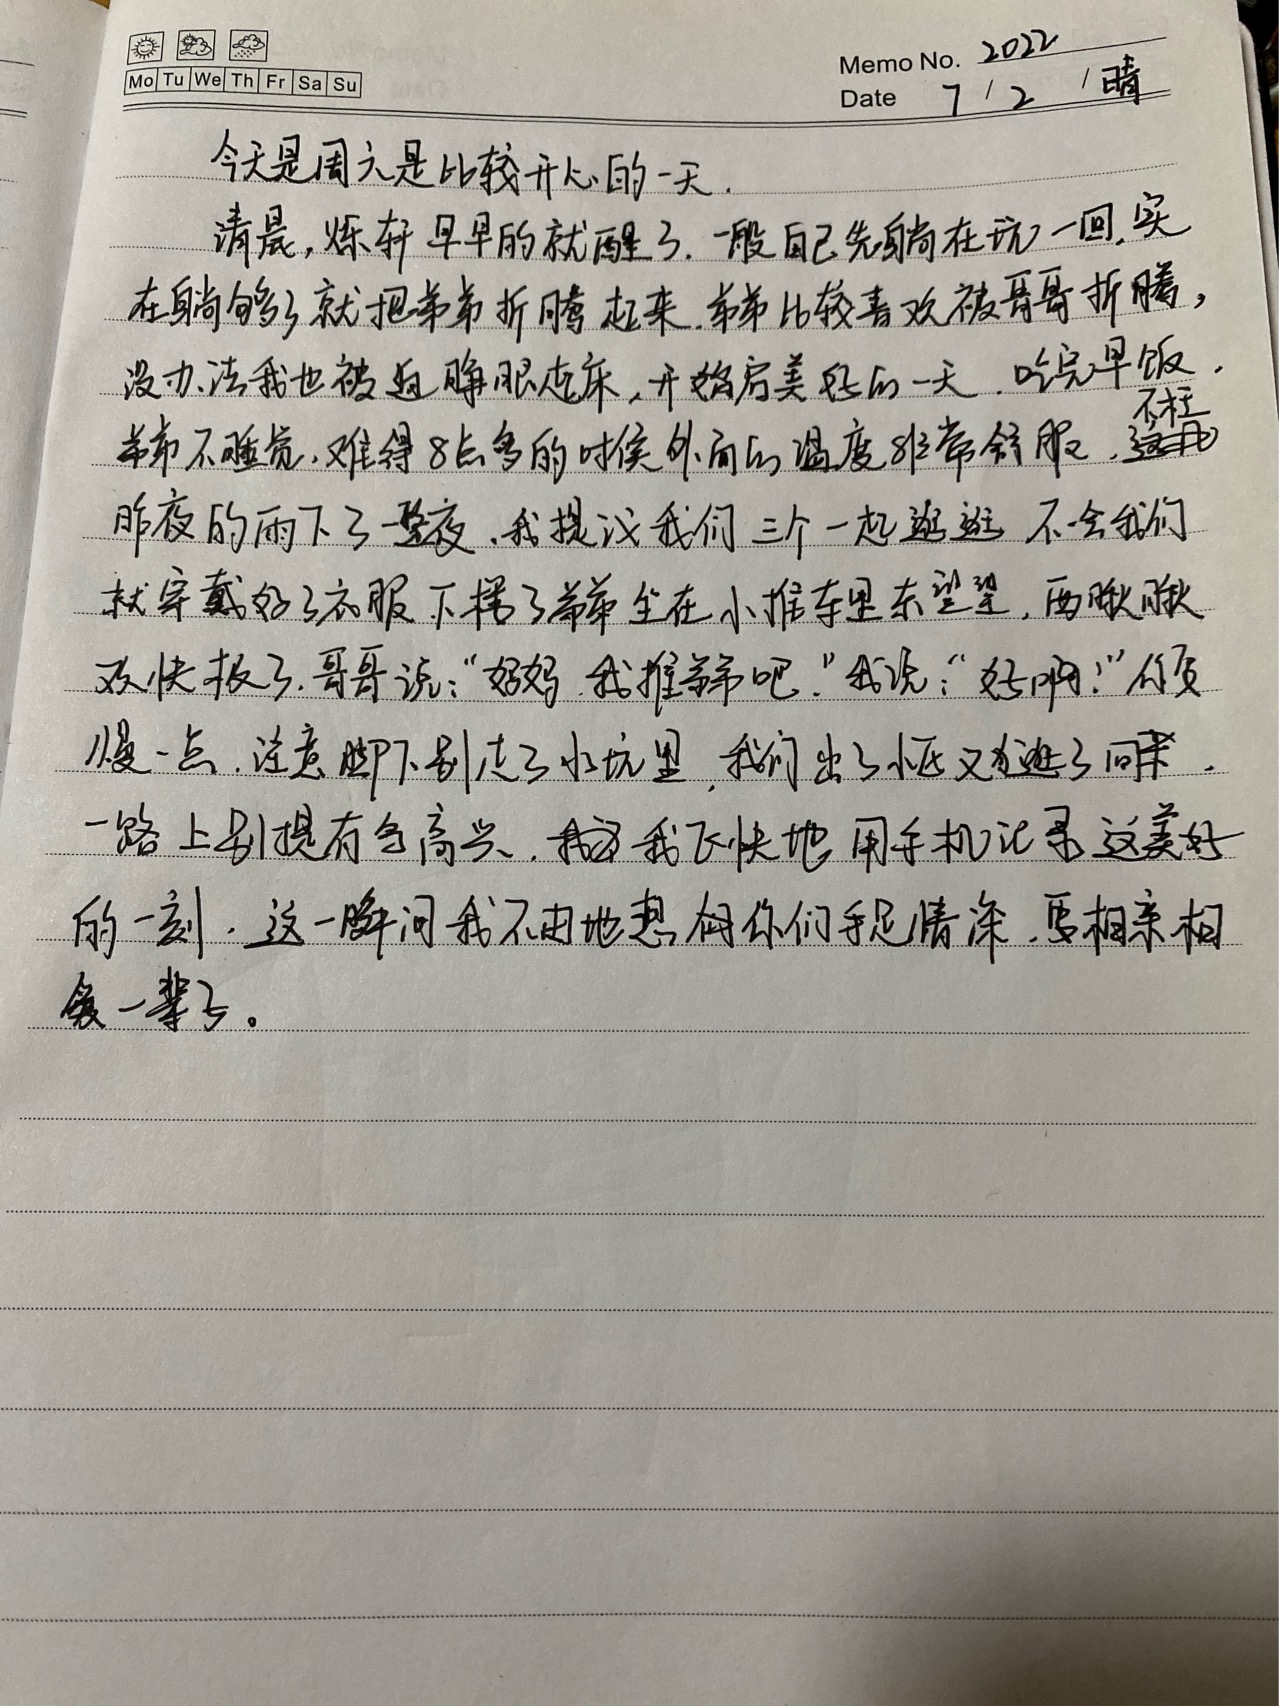 Mo Tu We Th Fr Sa Su
Memo No. 2022
Date 7 / 2 / 晴
今天是周六是比较开心的一天.
清晨,烁轩早早的就醒了.一般自己先躺在玩一回.实
在躺够了就把弟弟折腾起来.弟弟比较喜欢被哥哥折腾,
没办法我也被迫睁眼起床,开始启美好的一天.吃完早饭.
弟弟不睡觉.难得8点多的时侯外面的温度非常舒服.不枉
昨夜的雨下了一整夜.我提议我们三个一起逛逛 不一会我们
就穿戴好了衣服下楼了弟弟坐在小推车里东望望.西瞅瞅
欢快极了.哥哥说:“妈妈.我推弟弟吧.”我说:“好啊!”你须
慢一点.注意脚下别走了水坑里,我们出了小区又逛了回来.
一路上别提有多高兴.我飞快地用手机记录这美好
的一刻.这一瞬间我不由地想 你们手足情深.要相亲相
爱一辈子。